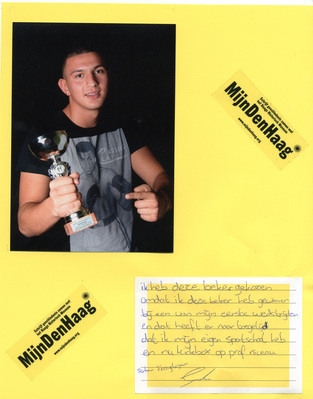 MijnDenHaag
www.mijndenhaag.org
MijnDenHaag
www.mijndenhaag.org
ik heb deze beker gekozen
omdat ik deze beker heb gewonnen
bij een van mijn eerste wedstrijden
en dat heeft er naar
dat ik mijn eigen sportschool heb
en nu kickbox op prof niveau